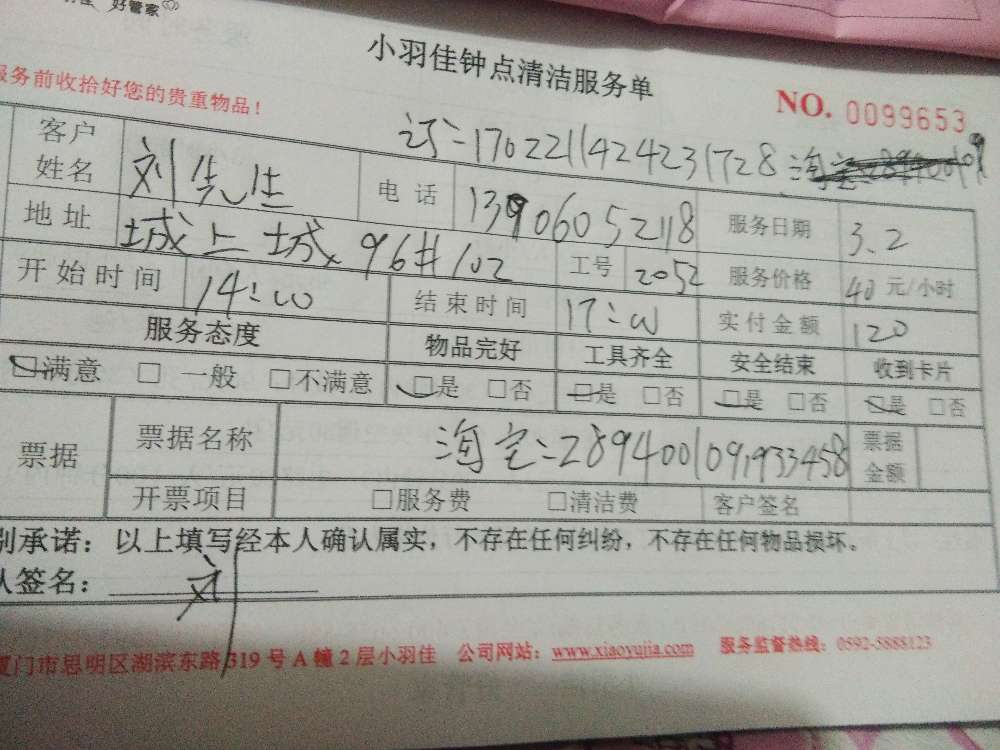 好管家
小羽佳钟点清洁服务单
服务前收拾好您的贵重物品！
NO. 0099653
订：1702211424231728 淘宝
客户姓名 刘先生 电话 13906052118 服务日期 3.2
地址 城上城 96#102 工号 2052 服务价格 40 元/小时
开始时间 14:00 结束时间 17:00 实付金额 120
服务态度 物品完好 工具齐全 安全结束 收到卡片
□满意 □一般 □不满意 □是 □否 □是 □否 □是 □否 □是 □否
票据 票据名称 淘宝：2894001091933458 票据金额
开票项目 □服务费 □清洁费 客户签名
别承诺：以上填写经本人确认属实，不存在任何纠纷，不存在任何物品损坏。
人签名： 刘
厦门市思明区湖滨东路319号A幢2层小羽佳 公司网站：www.xiaoyujia.com 服务监督热线：0592-5888123